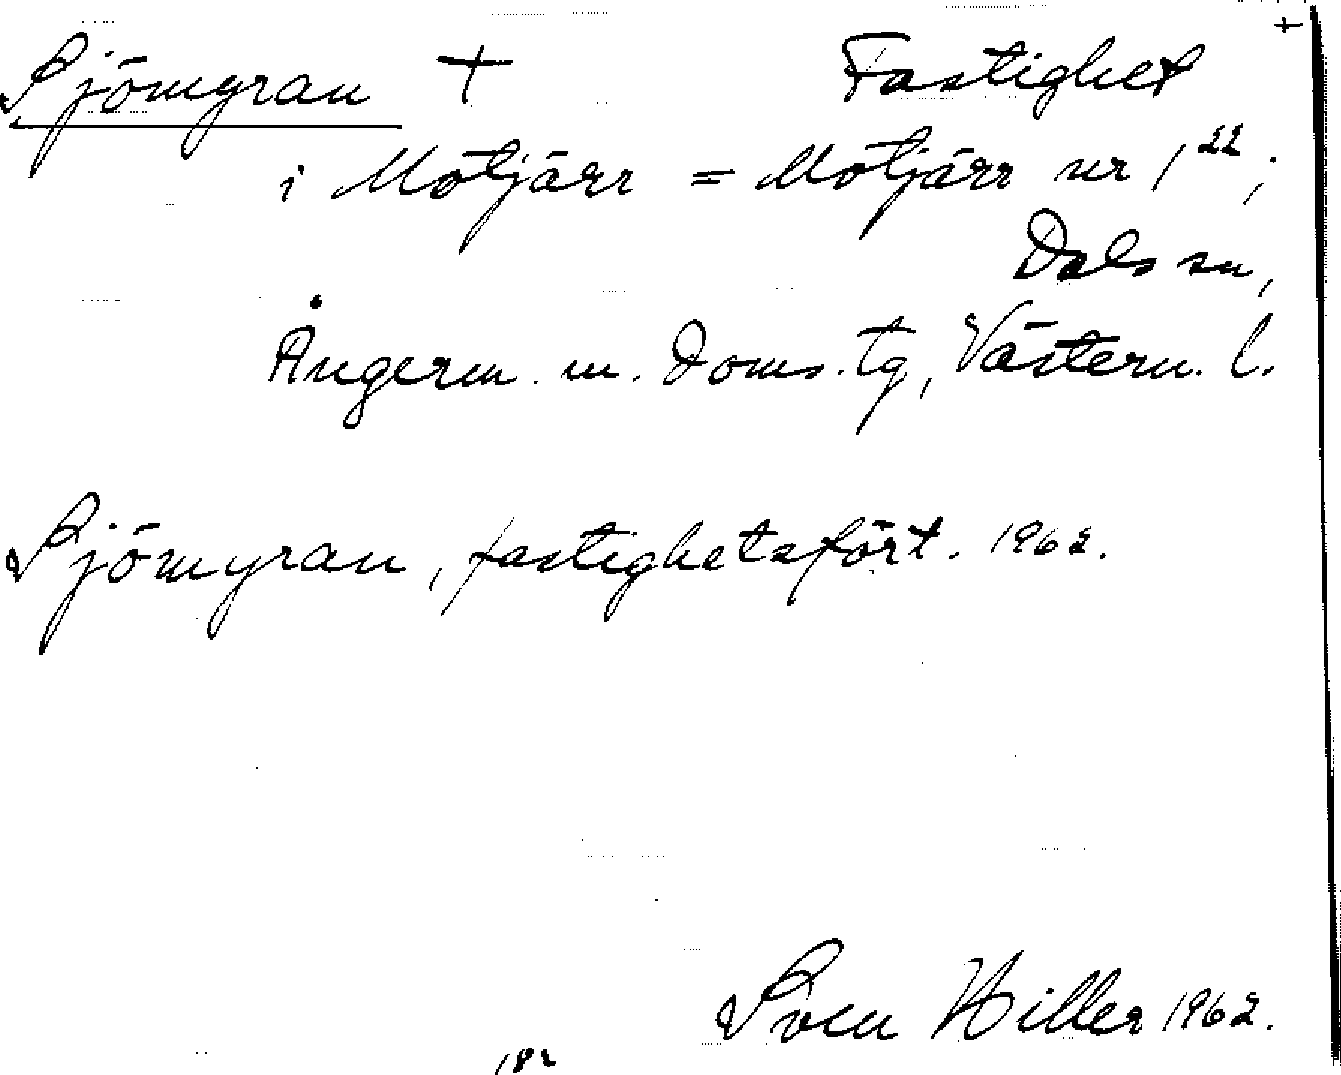 +
Sjömyran + Fastighet
i Mötjärr = Mötjärr nr 1²²;
Dals sn,
Ångerm. m. doms. tg, Västern. l.
Sjömyran, fastighetsfört. 1962.
Sven Hiller 1962.
182